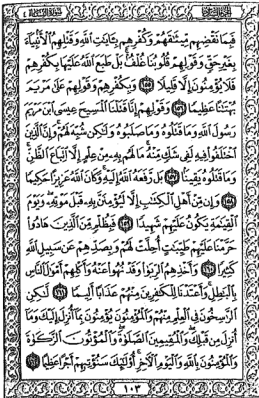 فَبِمَا نَقْضِهِم مِّيثَٰقَهُمْ وَكُفْرِهِم بِـَٔايَٰتِ ٱللَّهِ وَقَتْلِهِمُ ٱلْأَنۢبِيَآءَ
بِغَيْرِ حَقٍّ وَقَوْلِهِمْ قُلُوبُنَا غُلْفٌۢ بَلْ طَبَعَ ٱللَّهُ عَلَيْهَا بِكُفْرِهِمْ
فَلَا يُؤْمِنُونَ إِلَّا قَلِيلًا ١٥٥ وَبِكُفْرِهِمْ وَقَوْلِهِمْ عَلَىٰ مَرْيَمَ
بُهْتَٰنًا عَظِيمًا ١٥٦ وَقَوْلِهِمْ إِنَّا قَتَلْنَا ٱلْمَسِيحَ عِيسَى ٱبْنَ مَرْيَمَ
رَسُولَ ٱللَّهِ وَمَا قَتَلُوهُ وَمَا صَلَبُوهُ وَلَٰكِن شُبِّهَ لَهُمْ وَإِنَّ ٱلَّذِينَ
ٱخْتَلَفُوا۟ فِيهِ لَفِى شَكٍّ مِّنْهُ مَا لَهُم بِهِۦ مِنْ عِلْمٍ إِلَّا ٱتِّبَاعَ ٱلظَّنِّ
وَمَا قَتَلُوهُ يَقِينًۢا ١٥٧ بَل رَّفَعَهُ ٱللَّهُ إِلَيْهِ وَكَانَ ٱللَّهُ عَزِيزًا حَكِيمًا
١٥٨ وَإِن مِّنْ أَهْلِ ٱلْكِتَٰبِ إِلَّا لَيُؤْمِنَنَّ بِهِۦ قَبْلَ مَوْتِهِۦ وَيَوْمَ
ٱلْقِيَٰمَةِ يَكُونُ عَلَيْهِمْ شَهِيدًا ١٥٩ فَبِظُلْمٍ مِّنَ ٱلَّذِينَ هَادُوا۟
حَرَّمْنَا عَلَيْهِمْ طَيِّبَٰتٍ أُحِلَّتْ لَهُمْ وَبِصَدِّهِمْ عَن سَبِيلِ ٱللَّهِ
كَثِيرًا ١٦٠ وَأَخْذِهِمُ ٱلرِّبَوٰا۟ وَقَدْ نُهُوا۟ عَنْهُ وَأَكْلِهِمْ أَمْوَٰلَ ٱلنَّاسِ
بِٱلْبَٰطِلِ وَأَعْتَدْنَا لِلْكَٰفِرِينَ مِنْهُمْ عَذَابًا أَلِيمًا ١٦١ لَّٰكِنِ
ٱلرَّٰسِخُونَ فِى ٱلْعِلْمِ مِنْهُمْ وَٱلْمُؤْمِنُونَ يُؤْمِنُونَ بِمَآ أُنزِلَ إِلَيْكَ وَمَآ
أُنزِلَ مِن قَبْلِكَ وَٱلْمُقِيمِينَ ٱلصَّلَوٰةَ وَٱلْمُؤْتُونَ ٱلزَّكَوٰةَ
وَٱلْمُؤْمِنُونَ بِٱللَّهِ وَٱلْيَوْمِ ٱلْءَاخِرِ أُو۟لَٰٓئِكَ سَنُؤْتِيهِمْ أَجْرًا عَظِيمًا ١٦٢
١٠٣